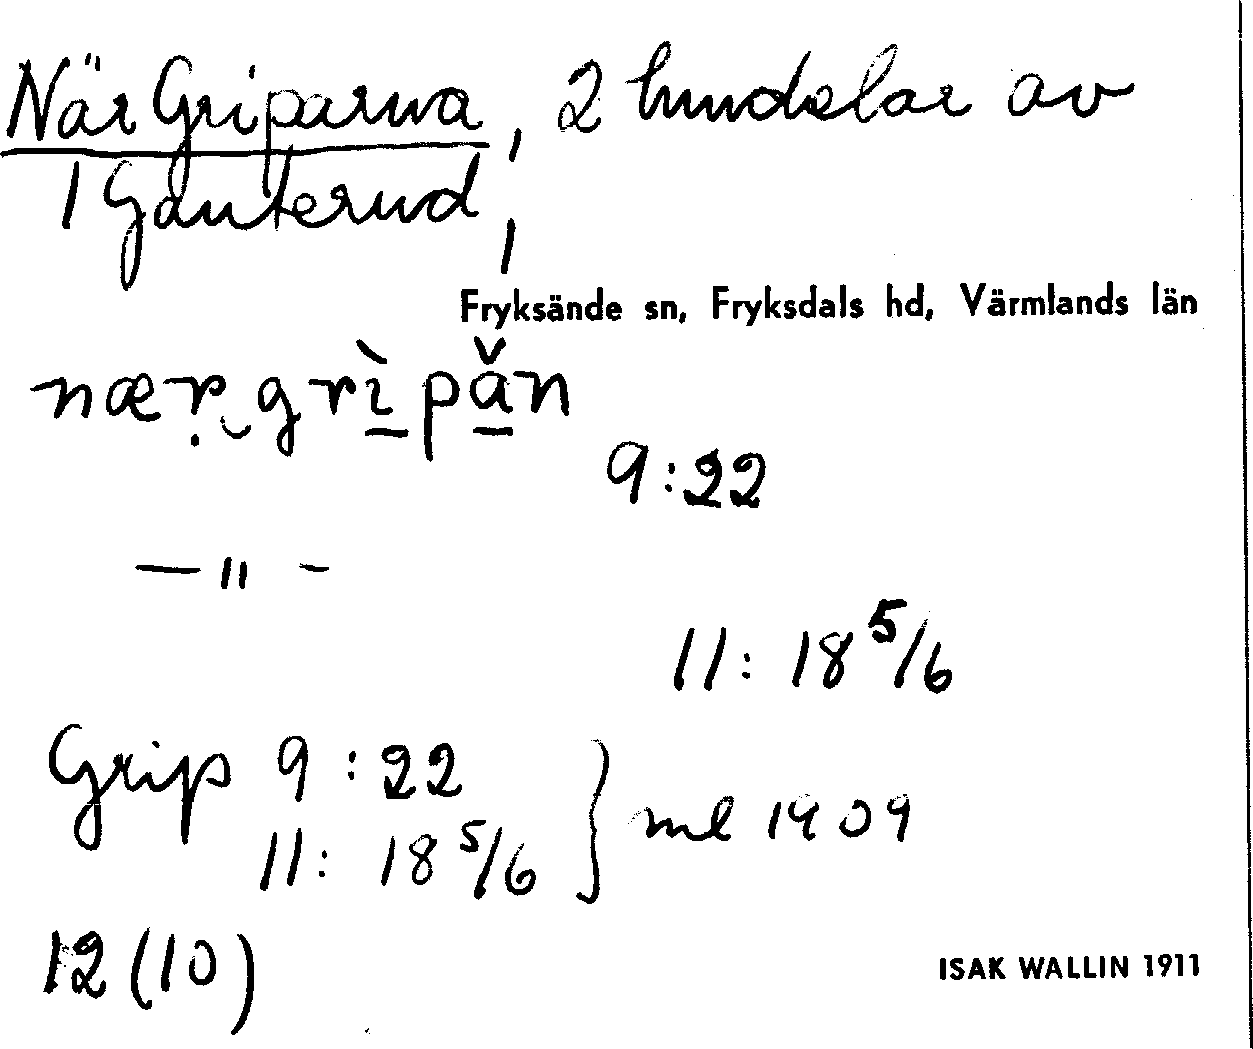 När Griparna, 2 hundelar av
1 Gauterud,
Fryksände sn, Fryksdals hd, Värmlands län
næṛ‿grìpǎn
9:22
—"-
11: 18 5/6
Grip 9:22
11: 18 5/6 } ml 1909
12(10)
ISAK WALLIN 1911